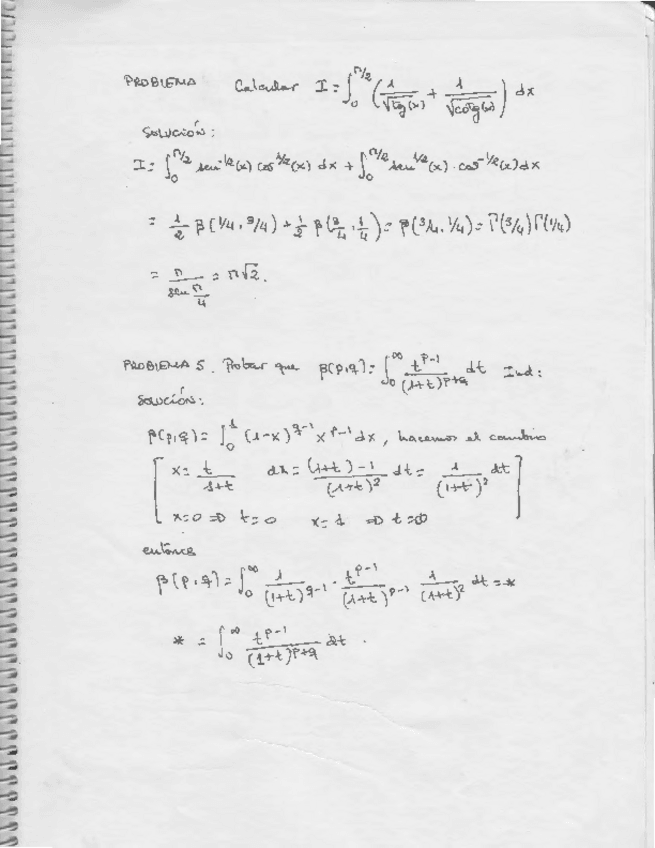 PROBLEMA Calcular I = ∫₀^{π/2} (1/√tg(x) + 1/√cotg(x)) dx
SOLUCIÓN:
I = ∫₀^{π/2} sen^{-1/2}(x) cos^{1/2}(x) dx + ∫₀^{π/2} sen^{1/2}(x) · cos^{-1/2}(x) dx
= 1/2 β(1/4, 3/4) + 1/2 β(3/4, 1/4) = β(3/4, 1/4) = Γ(3/4) Γ(1/4)
= π / sen π/4 = π√2.
PROBLEMA 5. Probar que β(p,q) = ∫₀^∞ t^{p-1}/(1+t)^{p+q} dt Ind:
SOLUCIÓN:
β(p,q) = ∫₀¹ (1-x)^{q-1} x^{p-1} dx, hacemos el cambio
[ x = t/(1+t) dx = ((1+t)-1)/(1+t)² dt = 1/(1+t)² dt
x=0 ⇒ t=0 x=1 ⇒ t=∞ ]
entonces
β(p,q) = ∫₀^∞ 1/(1+t)^{q-1} · t^{p-1}/(1+t)^{p-1} 1/(1+t)² dt = *
* = ∫₀^∞ t^{p-1}/(1+t)^{p+q} dt .